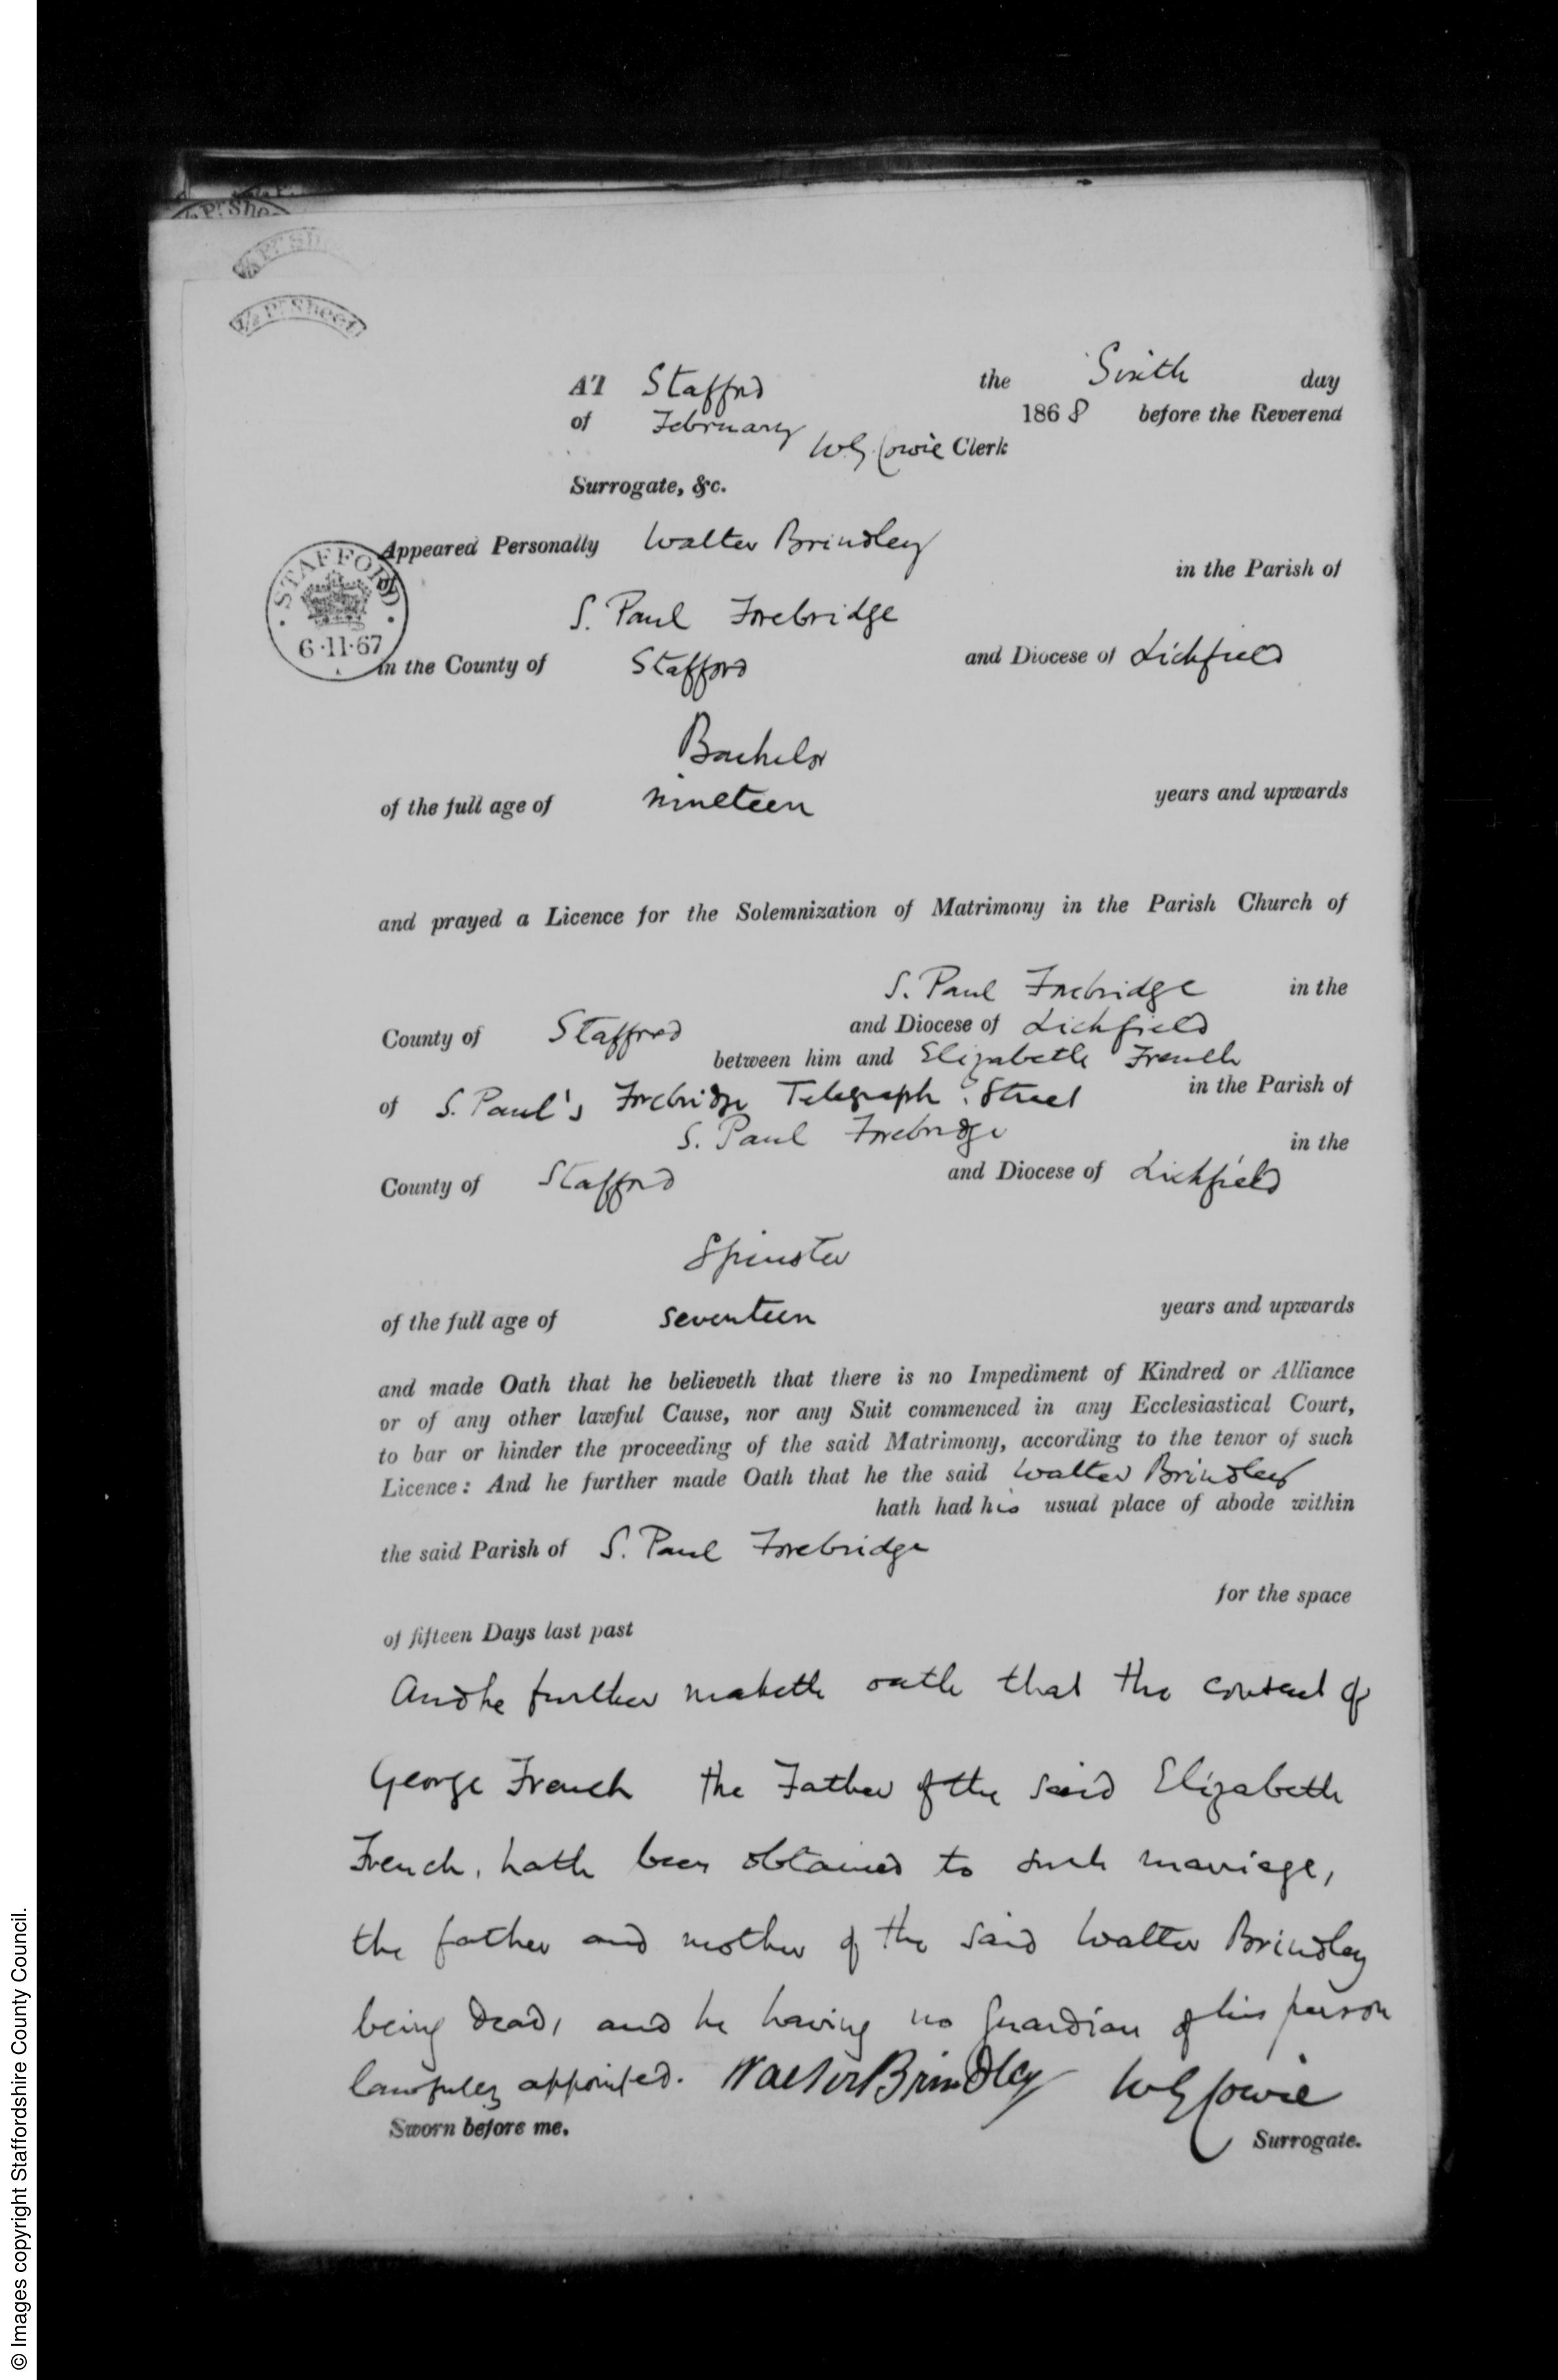 ½ Pr. Sheet
AT Stafford the Sixth day
of February 1868 before the Reverend
W G Cowie Clerk
Surrogate, &c.
Appeared Personally Walter Brindley
of in the Parish of
S. Paul Forebridge
STAFFORD
6·11·67
in the County of Stafford and Diocese of Lichfield
Bachelor
of the full age of nineteen years and upwards
and prayed a Licence for the Solemnization of Matrimony in the Parish Church of
S. Paul Forebridge in the
County of Stafford and Diocese of Lichfield
between him and Elizabeth French
of S. Paul's Forebridge Telegraph Street in the Parish of
S. Paul Forebridge in the
County of Stafford and Diocese of Lichfield
Spinster
of the full age of seventeen years and upwards
and made Oath that he believeth that there is no Impediment of Kindred or Alliance
or of any other lawful Cause, nor any Suit commenced in any Ecclesiastical Court,
to bar or hinder the proceeding of the said Matrimony, according to the tenor of such
Licence: And he further made Oath that he the said Walter Brindley
hath had his usual place of abode within
the said Parish of S. Paul Forebridge
for the space
of fifteen Days last past
And he further maketh oath that the consent of
George French the Father of the said Elizabeth
French, hath been obtained to such marriage,
the father and mother of the said Walter Brindley
being dead, and he having no Guardian of his person
lawfully appointed. Walter Brindley W G Cowie
Sworn before me.
Surrogate.
© Images copyright Staffordshire County Council.